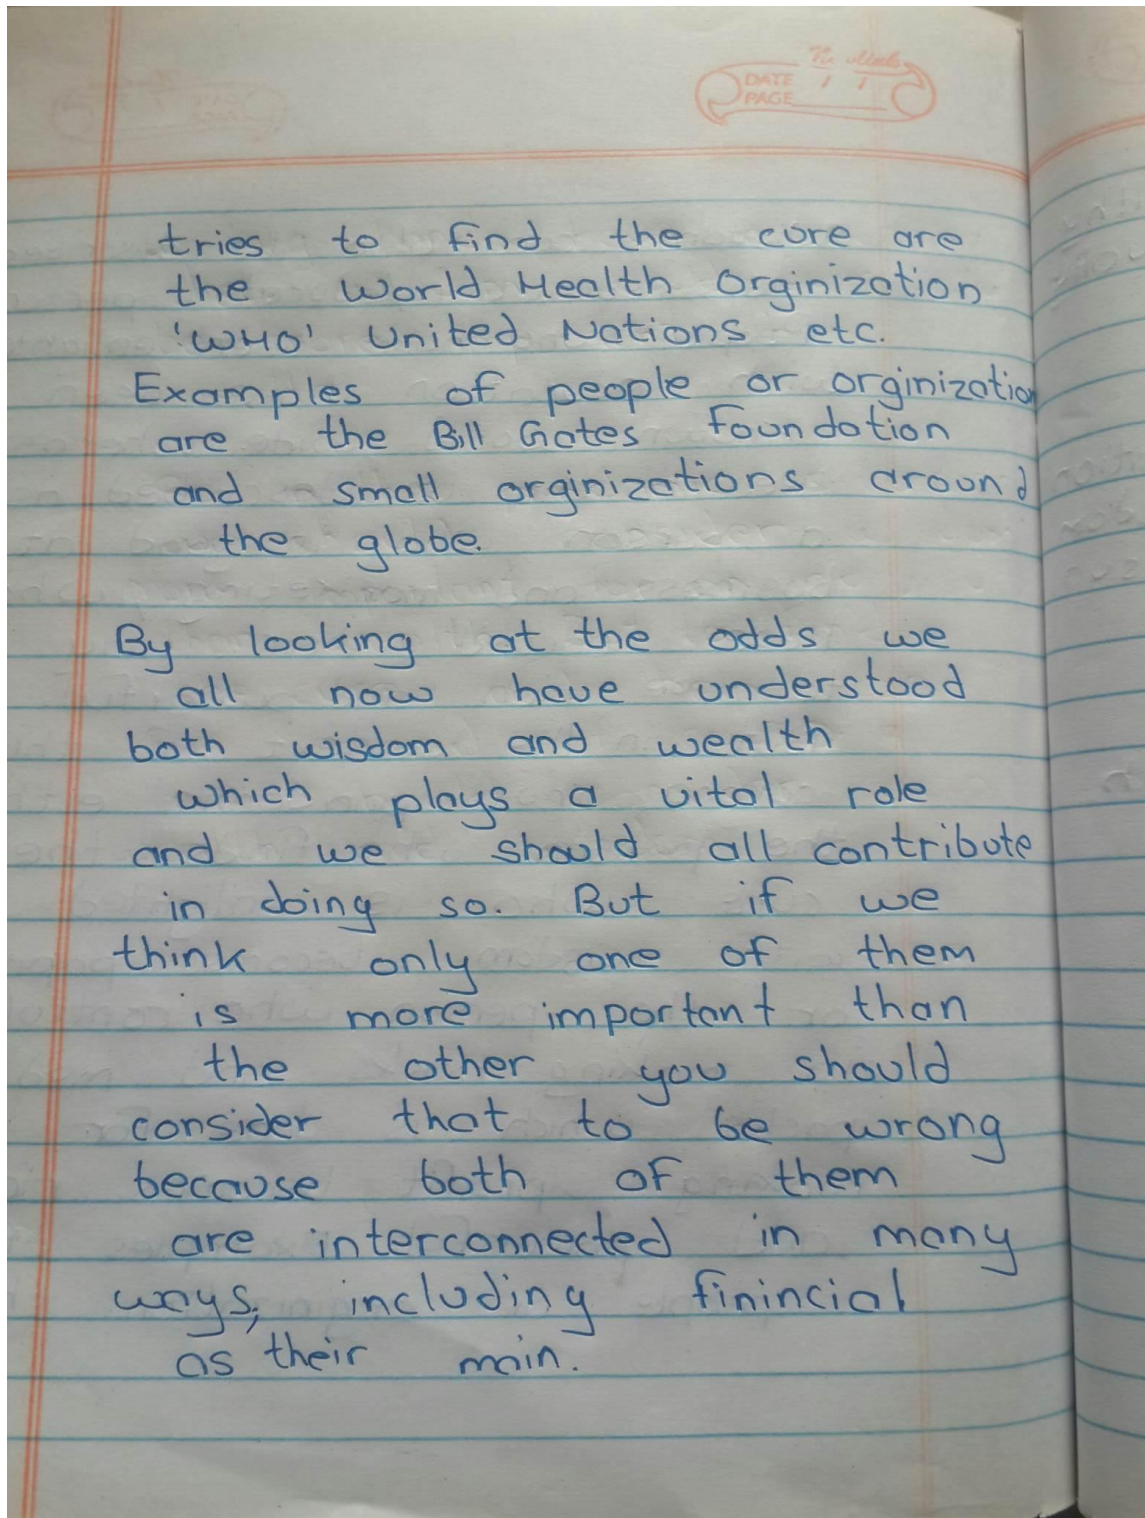 DATE / /
PAGE
tries to find the cure are
the World Health Orginization
'WHO' United Nations etc.
Examples of people or orginization
are the Bill Gates Foundation
and small orginizations around
the globe.
By looking at the odds we
all now have understood
both wisdom and wealth
which plays a vital role
and we should all contribute
in doing so. But if we
think only one of them
is more important than
the other you should
consider that to be wrong
because both of them
are interconnected in many
ways, including finincial
as their main.